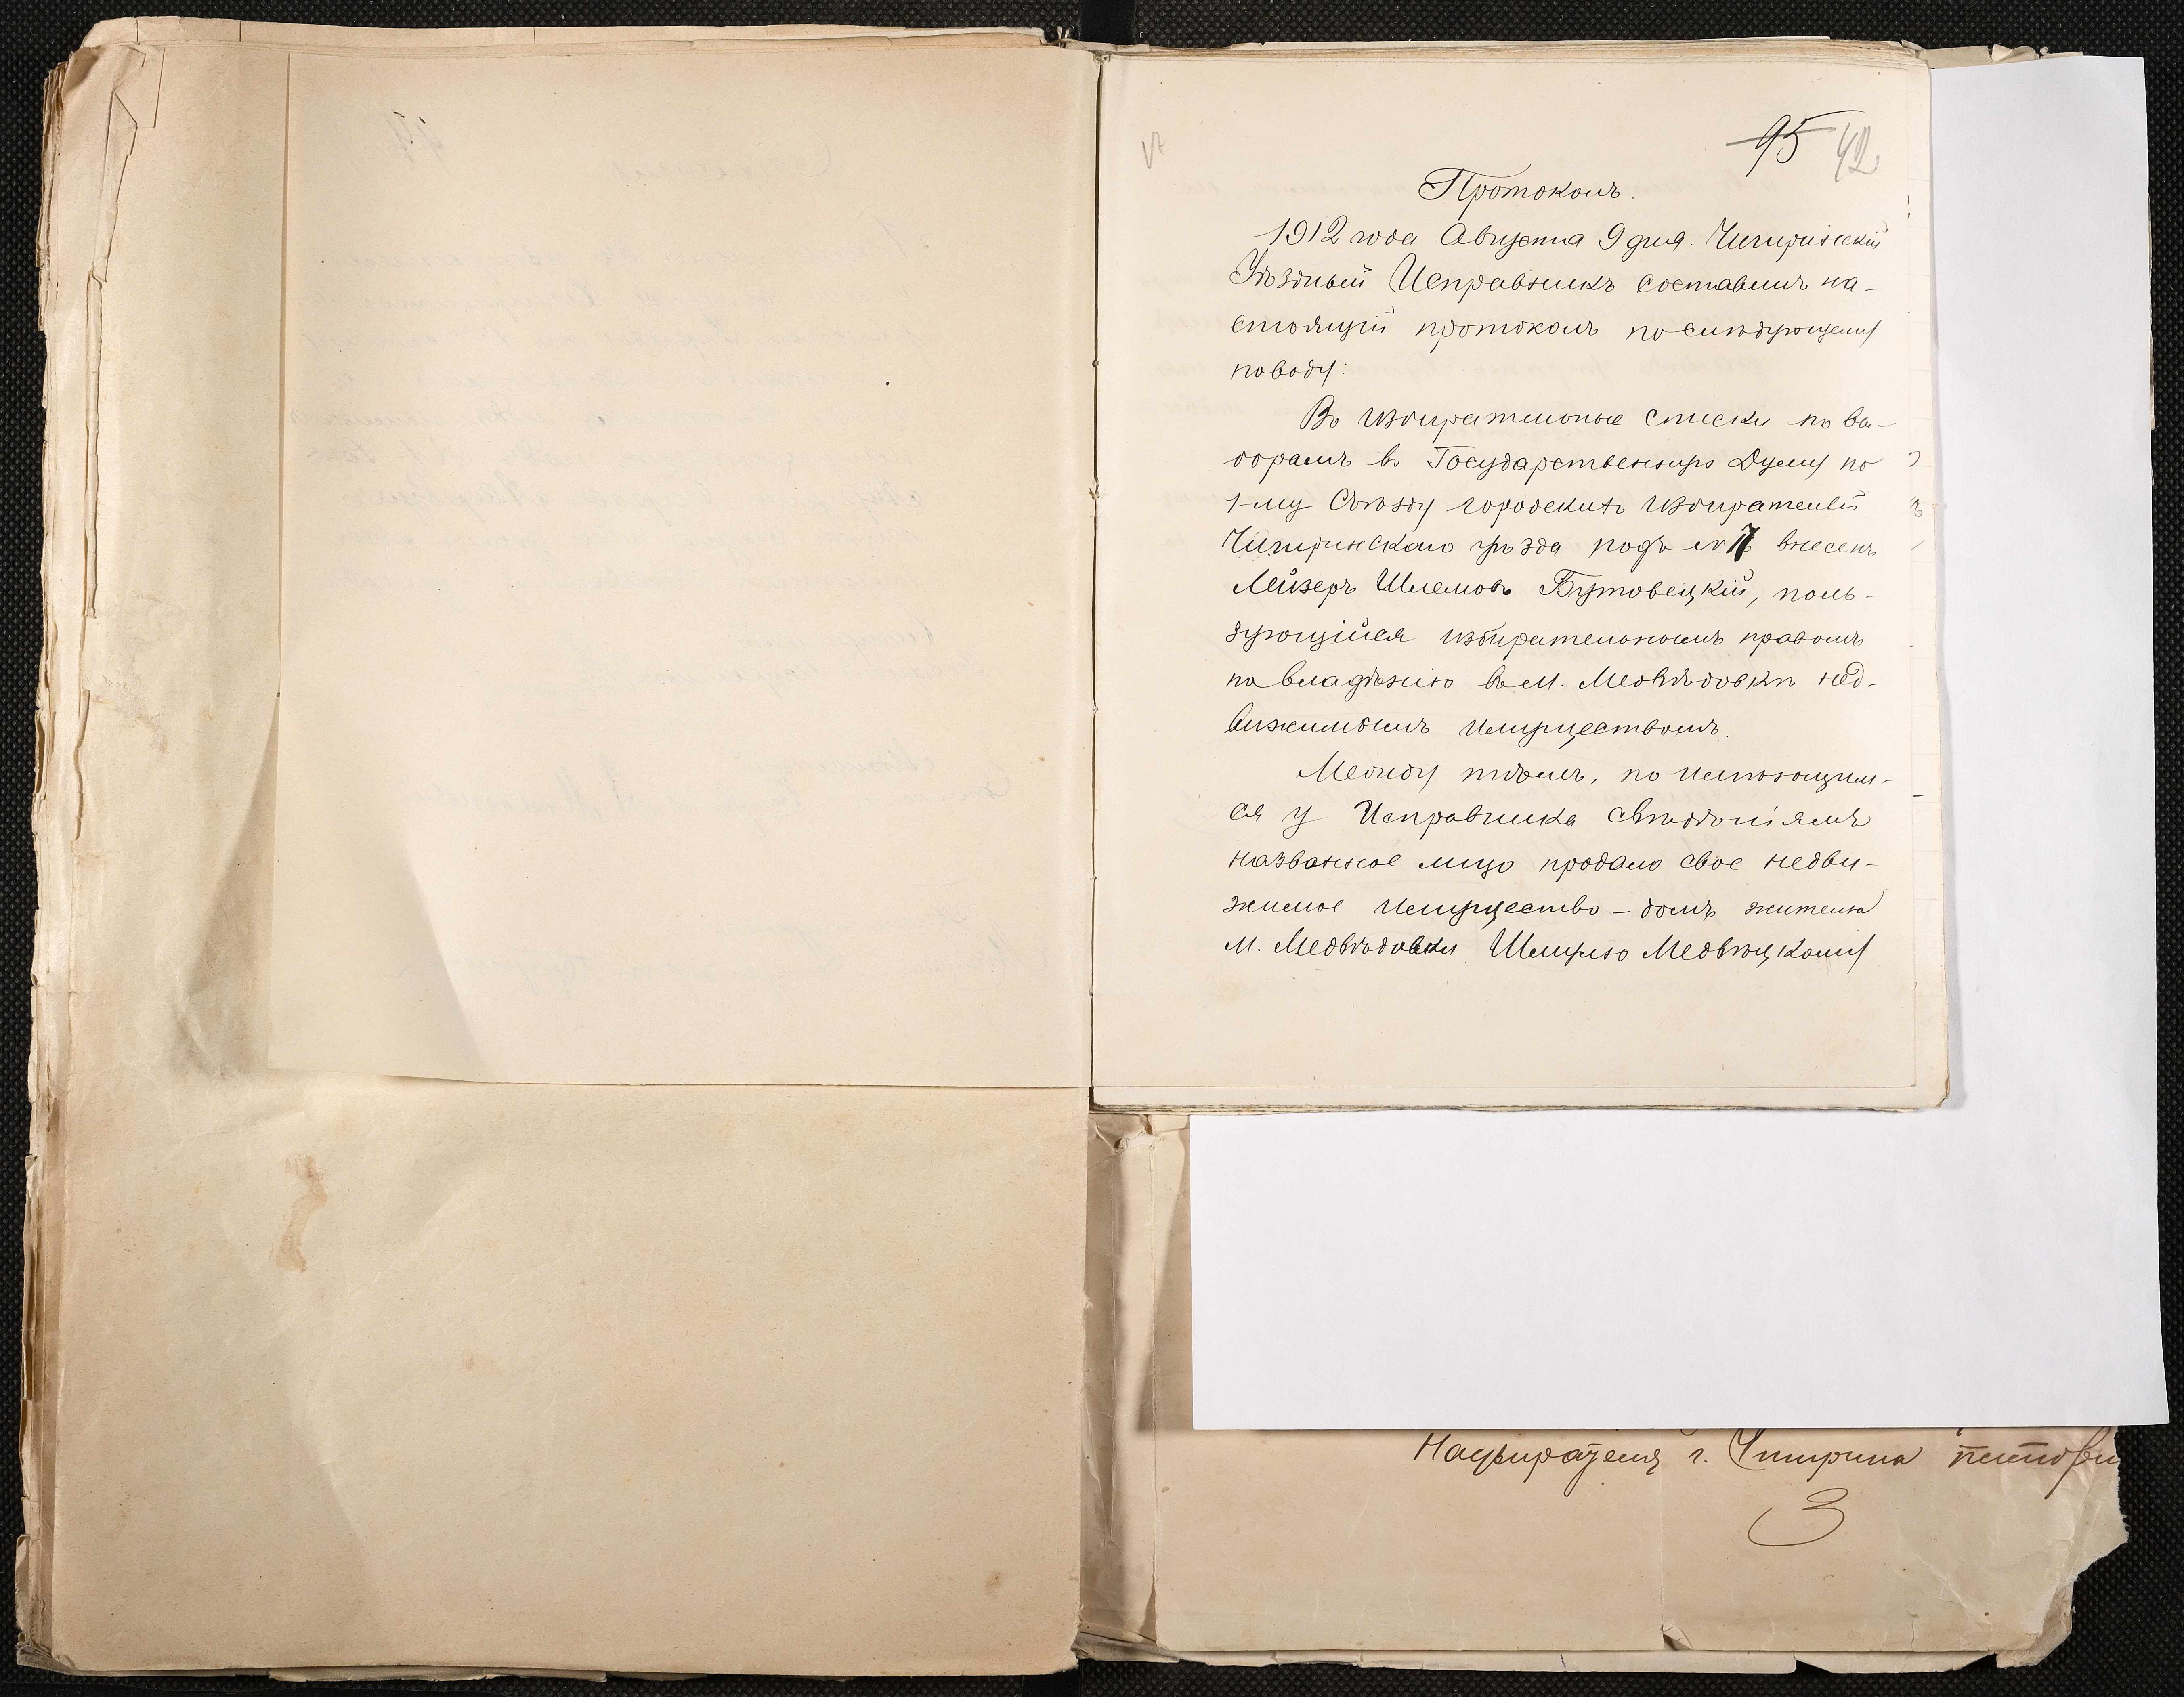 95 42
Протоколъ.
1912 года Августа 9 дня. Чигиринскій
Уѣздный Исправникъ составилъ на-
стоящій протоколъ по слѣдующему
поводу:
Въ избирательные списки по вы-
борамъ въ Государственную Думу по
1-му Съѣзду городскихъ избирателей
Чигиринскаго уѣзда подъ № внесенъ
Лейзеръ Шлемовъ Бутовецкій, поль-
зующійся избирательнымъ правомъ
по владѣнію въ м. Медвѣдовкѣ нед-
вижимымъ имуществомъ.
Между тѣмъ, по имѣющим-
ся у Исправника свѣдѣніямъ
названное лицо продало свое недви-
жимое имущество – домъ жителю
м. Медвѣдовки Шмулю Медвѣцкому
г. Чигирина
3